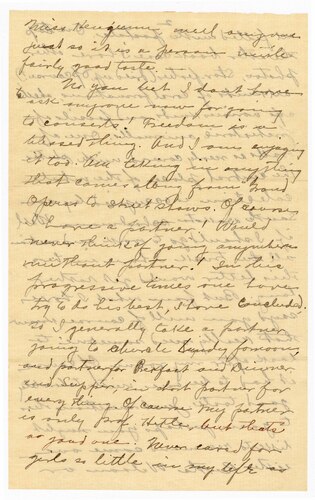 Miss Hengemu well any one
just so it is a person with
fairly good taste.
No you bet I don't have
to ask anyone now for going
to concerts! Freedom is a
blessed thing. And I am enjoying
it too. Am taking in anything
that comes along from Grand
Operas to street shows. Of course
I have a partner! Would
never think of going anywhere
without partner! In this
progressive times one have
try to do his best, I have concluded.
so I generally take a partner
going to church Sunday forenoon,
and partner for Breakfast and Dinner
and Supper in short partner for
everything. Of course my partner
is only Prof Hitler, but that's
as good one. Never cared for
girls so little in my life as